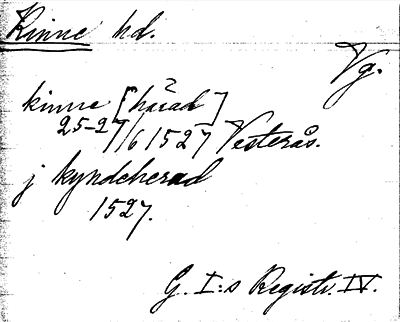 Kinne hd.
Vg.
kinne [härad]
25-27/6 1527 Vesterås.
j kyndeherad
1527.
G. I:s Registr. IV.